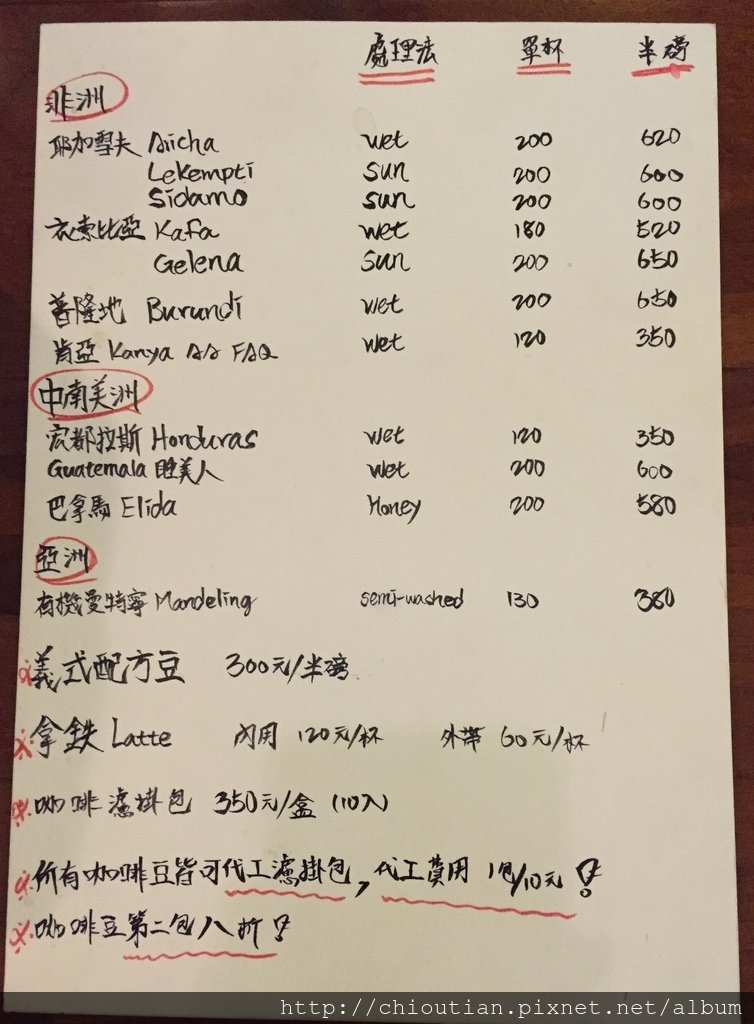 處理法 單杯 半磅
非洲
耶加雪夫 Aricha wet 200 620
Lekempti sun 200 600
Sidamo sun 200 600
衣索比亞 Kafa wet 180 520
Gelena sun 200 650
普隆地 Burundi wet 200 650
肯亞 Kanya AA FAQ wet 120 350
中南美洲
宏都拉斯 Honduras wet 120 350
Guatemala 睡美人 wet 200 600
巴拿馬 Elida Honey 200 580
亞洲
有機曼特寧 Mandeling semi-washed 130 380
※義式配方豆 300元/半磅
※拿鉄 Latte 內用 120元/杯 外帶 60元/杯
※咖啡濾掛包 350元/盒 (10入)
※所有咖啡豆皆可代工濾掛包,代工費用 1包/10元!
※咖啡豆第二包八折!
http://chioutian.pixnet.net/album